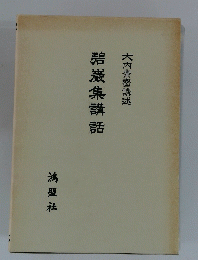 大内青巒講述
碧巌集講話
鴻盟社